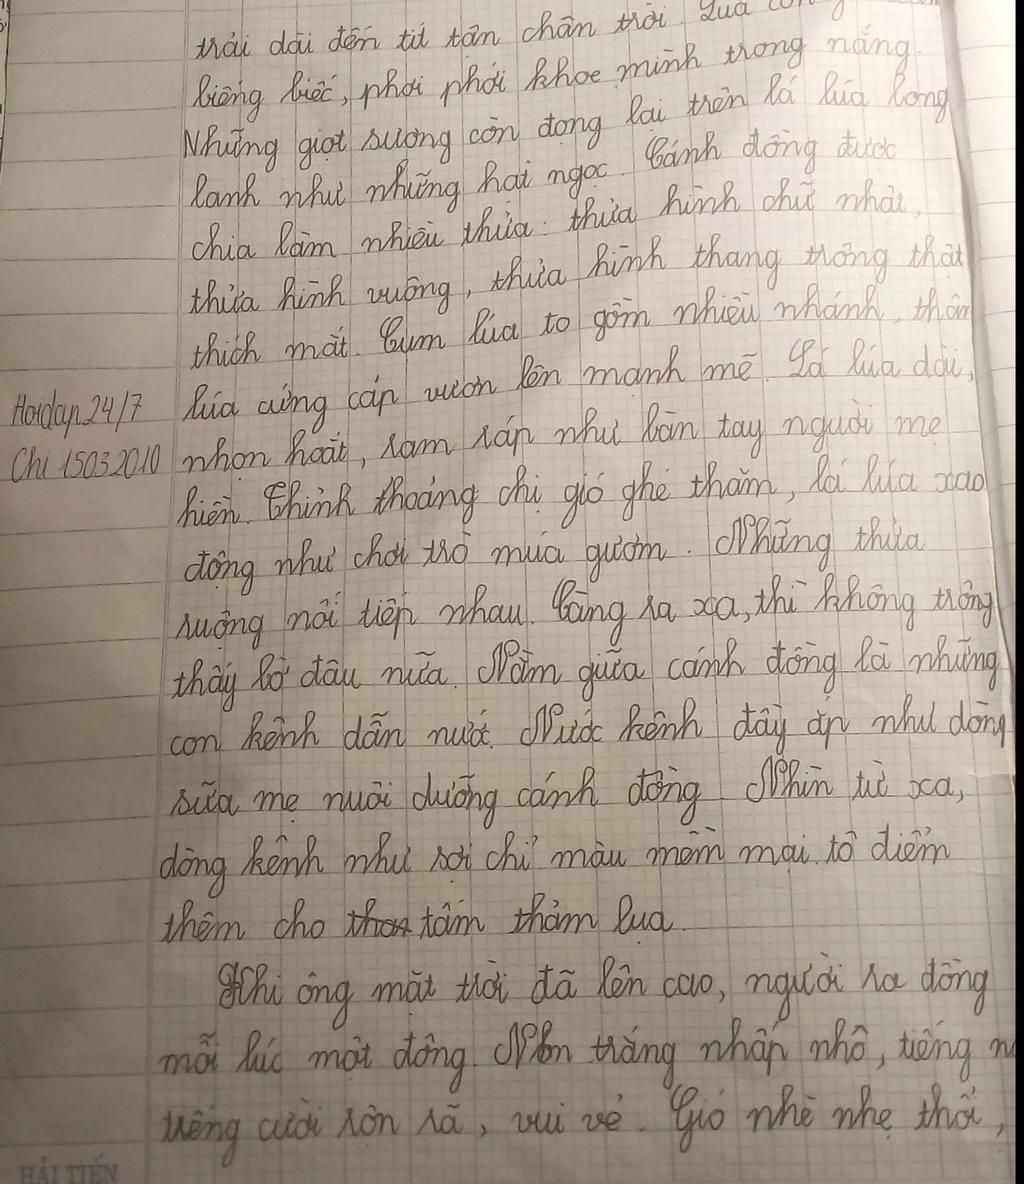 trải dài đến tít tận chân trời. Lúa con g
biêng biếc, phơi phới khoe mình trong nắng.
Những giọt sương còn đọng lại trên lá lúa long
lanh như những hạt ngọc. Cánh đồng được
chia làm nhiều thửa: thửa hình chữ nhật,
thửa hình vuông, thửa hình thang trông thật
thích mắt. Cụm lúa to gồm nhiều nhánh, thân
lúa cứng cáp vươn lên mạnh mẽ. Lá lúa dài,
Hoidap24/7
Chi 15032010
nhọn hoắt, ram ráp như bàn tay người mẹ
hiền. Thỉnh thoảng chị gió ghé thăm, lá lúa xao
động như chơi trò múa gươm. Những thửa
ruộng nối tiếp nhau. Càng ra xa, thì không trông
thấy bờ đâu nữa. Nằm giữa cánh đồng là những
con kênh dẫn nước. Nước kênh đầy ắp như dòng
sữa mẹ nuôi dưỡng cánh đồng. Nhìn từ xa,
dòng kênh như sợi chỉ màu mềm mại tô điểm
thêm cho tấm thảm lụa.
Khi ông mặt trời đã lên cao, người ra đồng
mỗi lúc một đông. Nón trắng nhấp nhô, tiếng n
tiếng cười rôn rã, vui vẻ. Gió nhè nhẹ thổi,
HẢI TIẾN